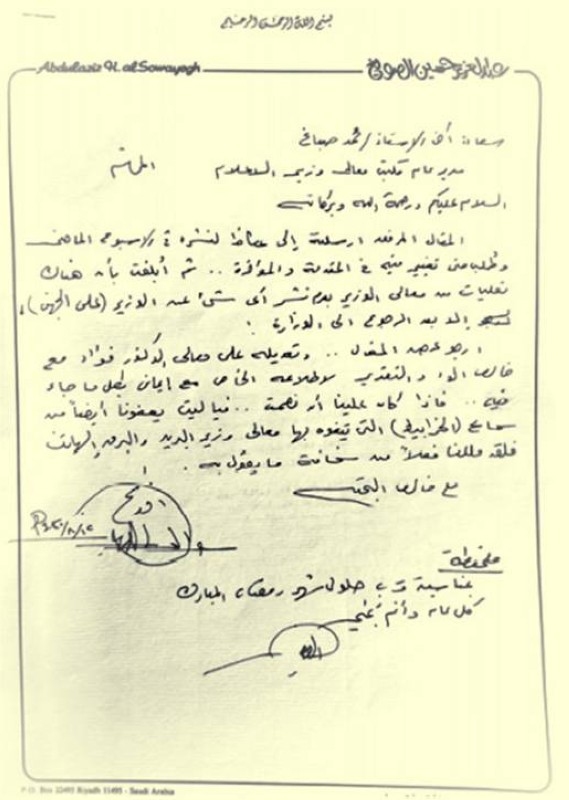 بسم الله الرحمن الرحيم
Abdulaziz H. al Sowayegh
عبدالعزيز حسين الصويغ
سعادة أخي الأستاذ / محمد صباغ
مدير عام مكتب معالي وزير الإعلام
السلام عليكم ورحمة الله وبركاته
المقال المرفق ارسلته إلى عكاظ لنشره في الاسبوع الماضي
وطُلب مني تغيير فيه في المقدمة والمؤخرة .. ثم أُبلغت بأن هناك
تعليمات من معالي الوزير بعدم نشر أي شئ عن الوزير (على الجهتين)،
إلا بعد الرجوع الى الوزارة !
ارجو عرض المقال .. وتعديله على معالي الدكتور فؤاد مع
خالص الود والتقدير لاطلاعه الخاص مع إيماني بكل ما جاء
فيه .. فإذا كان علينا أن نصمت .. فيا ليت يعفونا أيضاً من
سماع (الخرابيط) التي يتفوه بها معالي وزير البريد والبرق والهاتف
فلقد مللنا فعلاً من سخافة ما يقول به .
مع خالص التحية
ملاحظة
بمناسبة قرب حلول شهر رمضان المبارك
كل عام وأنتم بخير
P.O. Box 22495 Riyadh 11495 - Saudi Arabia